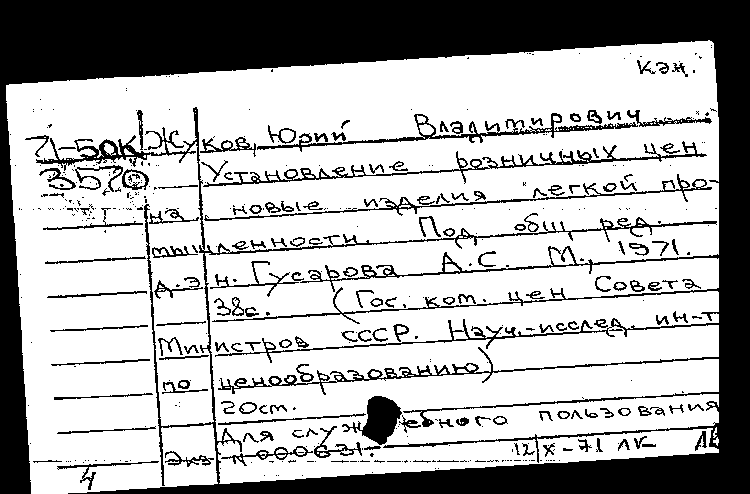 Кэн.
71-50К Жуков, Юрий Владимирович.
3520 Установление розничных цен
на новые изделия легкой про-
мышленности. Под общ. ред.
д.э.н. Гусарова А.С. М., 1971.
38с. (Гос. ком. цен Совета
Министров СССР. Науч.-исслед. ин-т
по ценообразованию)
20см.
Для служебного пользования
Экз N 000631.
12/X-71 ЛК
4